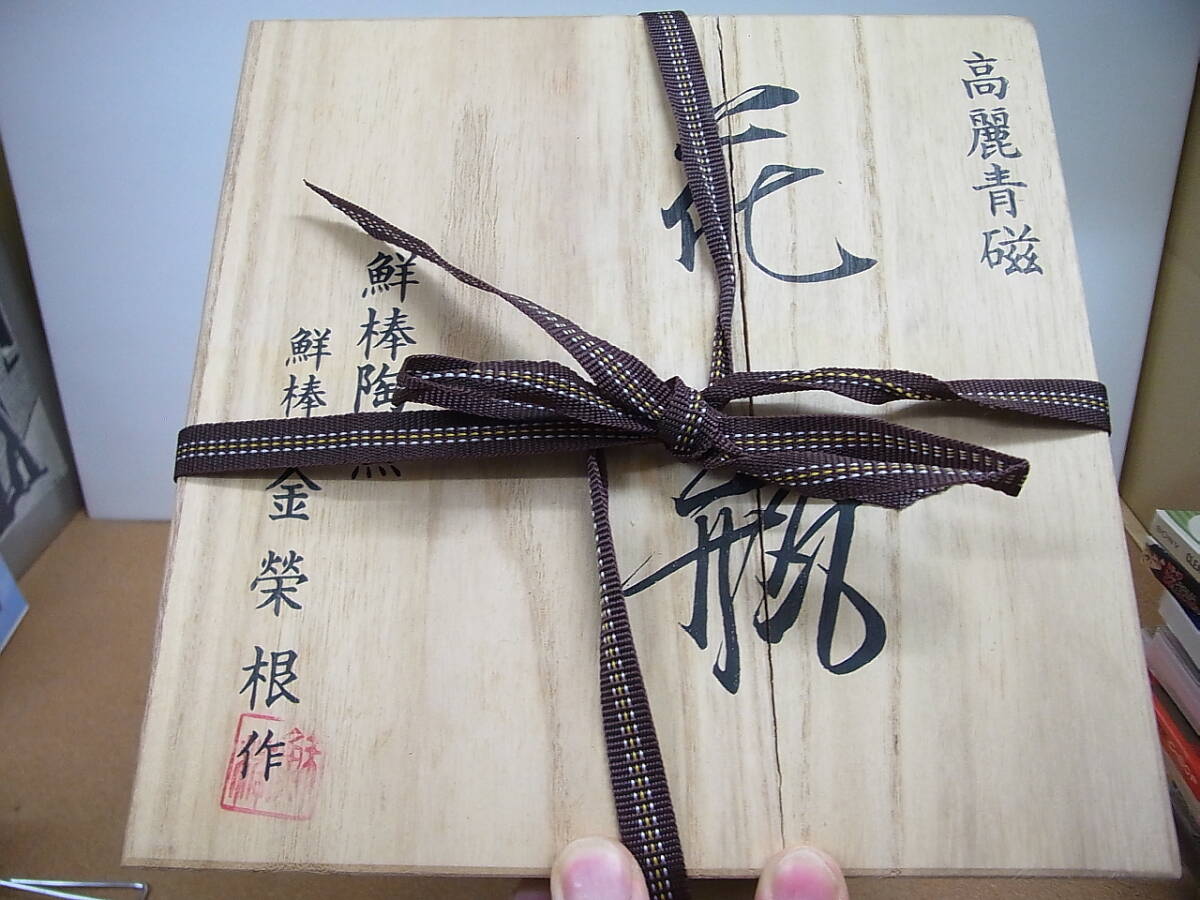 高麗青磁
花瓶
鮮棒陶窯
鮮棒 金榮根作